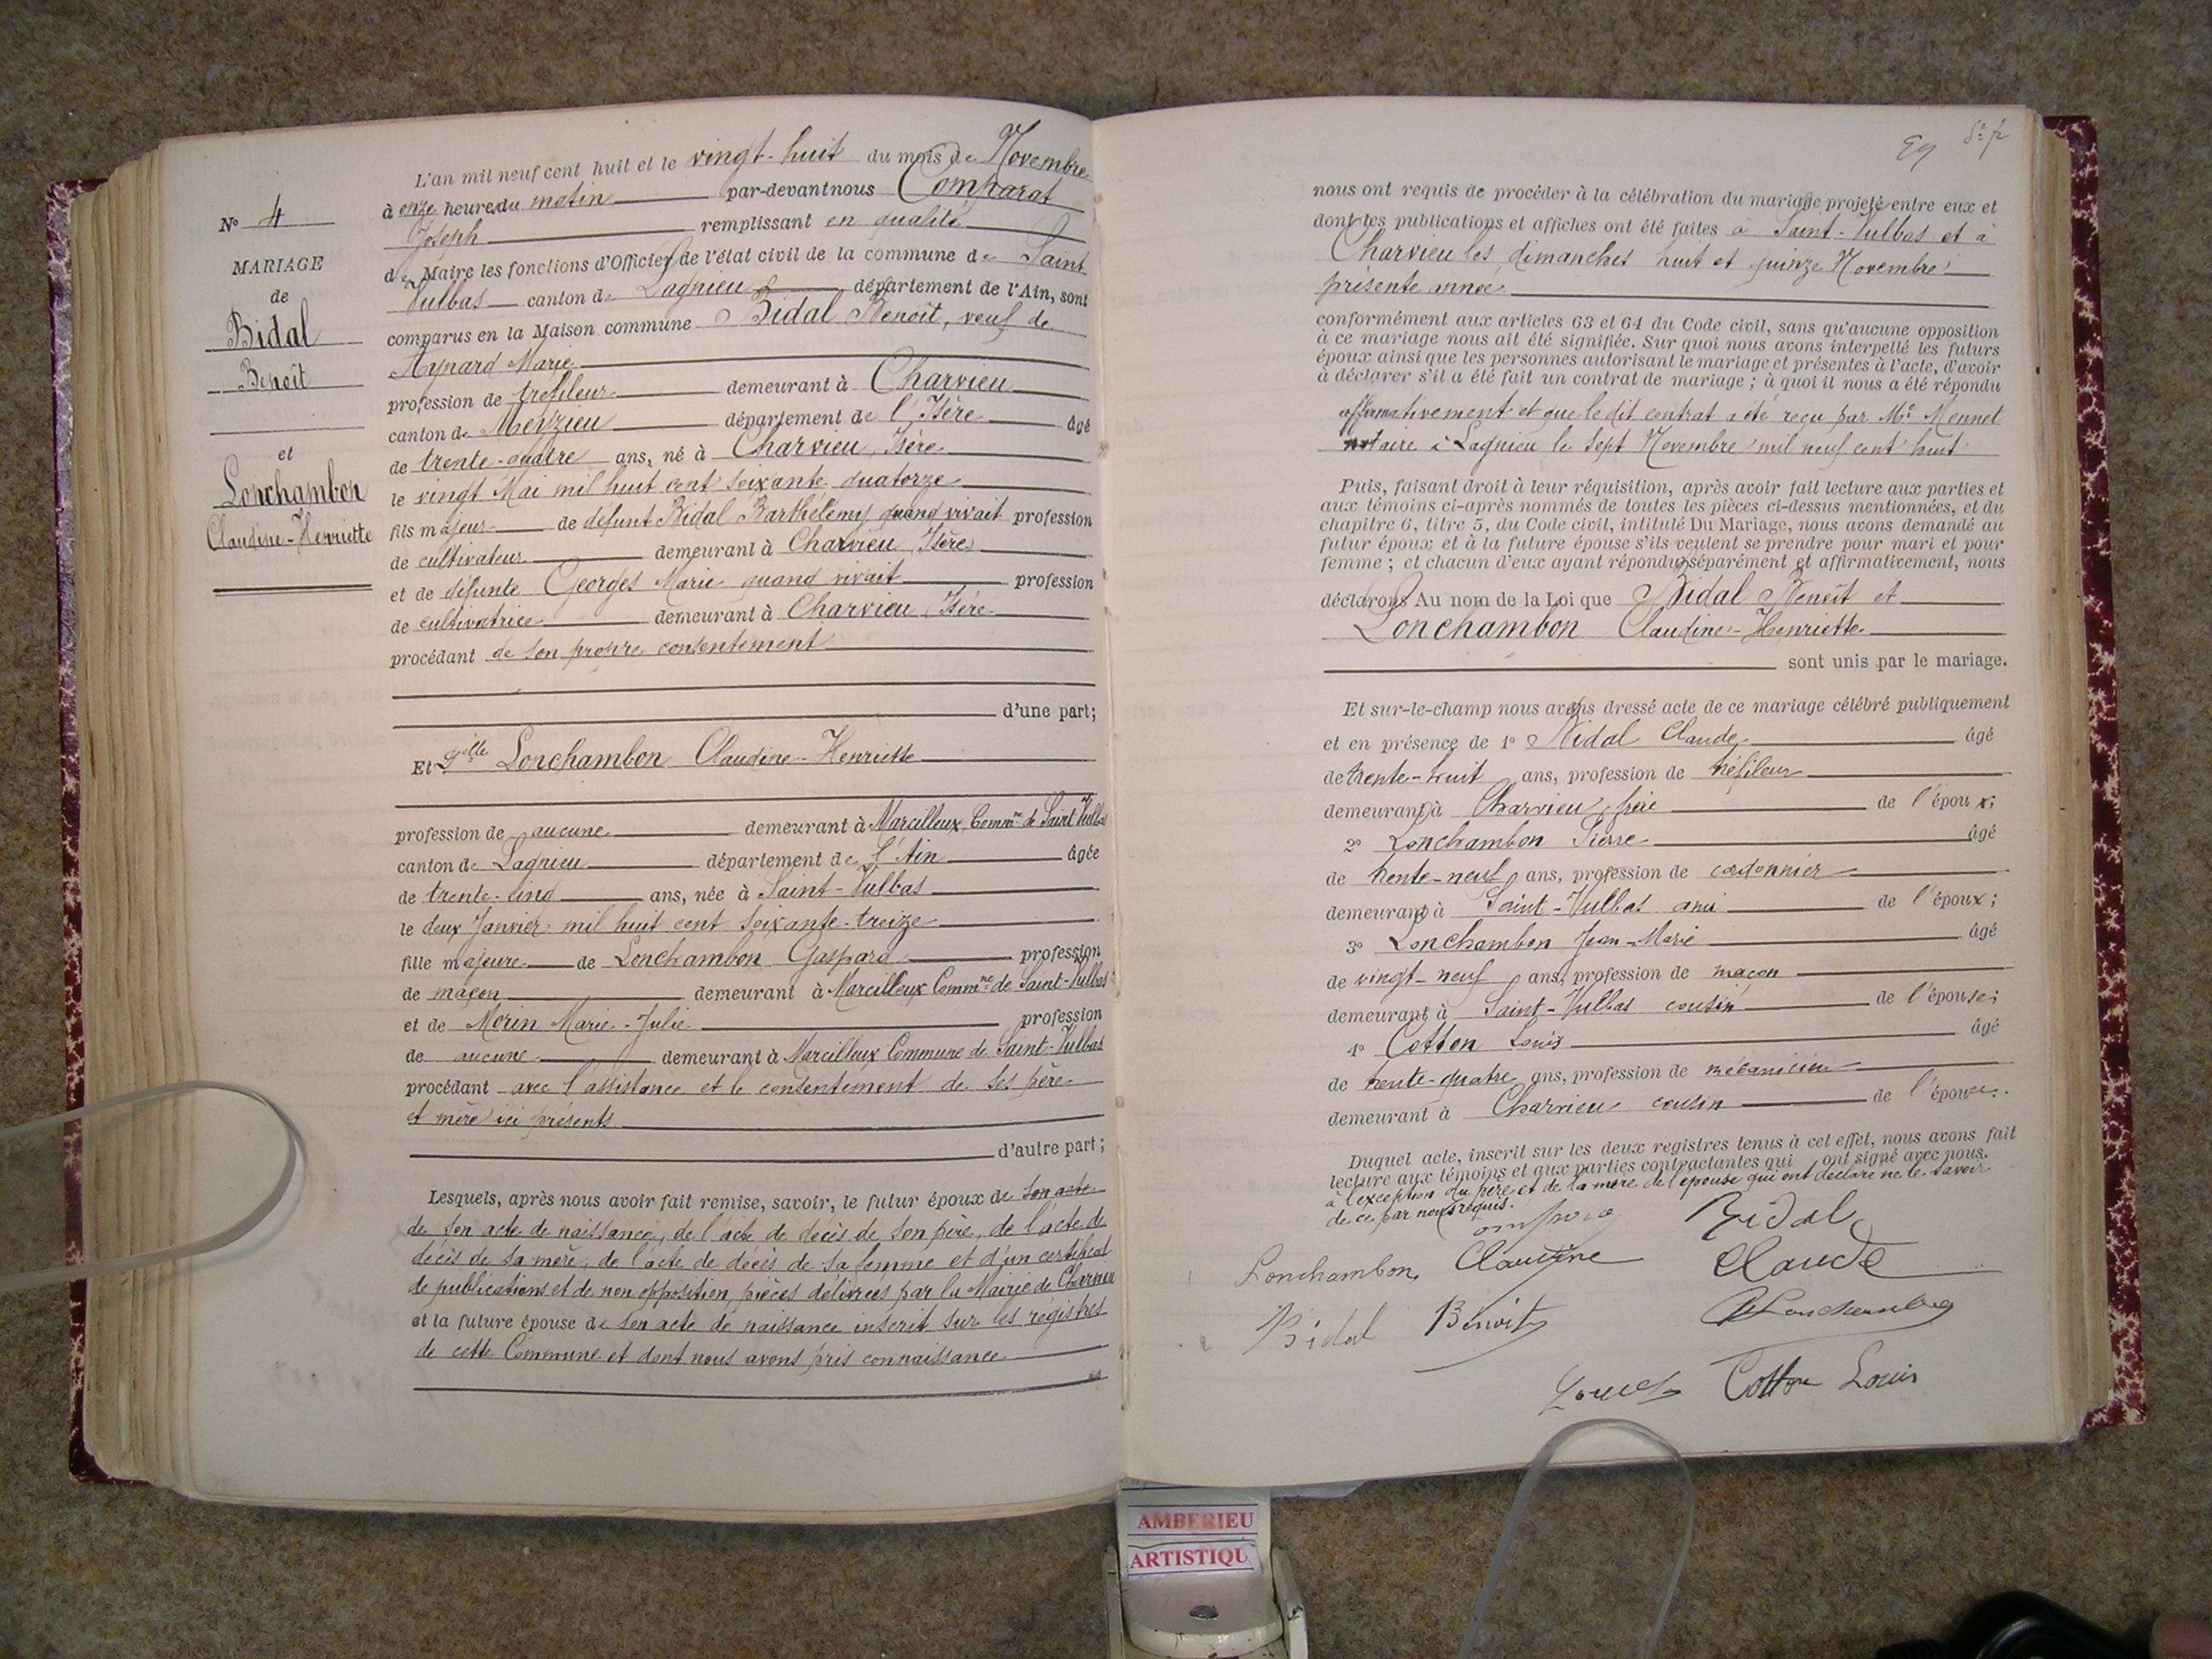 N° 4
MARIAGE
de
Bidal
Benoît
et
Lonchambon
Claudine-Henriette
L'an mil neuf cent huit et le vingt-huit du mois de Novembre
à onze heures du matin par-devant nous Comparat
Joseph remplissant en qualité
de Maire les fonctions d'Officier de l'état civil de la commune de Saint
Vulbas canton de Lagnieu département de l'Ain, sont
comparus en la Maison commune Bidal Benoît, veuf de
Aynard Marie
profession de tréfileur demeurant à Charvieu
canton de Meyzieu département de l'Isère âgé
de trente-quatre ans, né à Charvieu, Isère
le vingt Mai mil huit cent soixante quatorze
fils majeur de défunt Bidal Barthélemy quand vivait profession
de cultivateur demeurant à Charvieu, Isère
et de défunte Georges Marie quand vivait profession
de cultivatrice demeurant à Charvieu, Isère
procédant de son propre consentement
d'une part;
Et Delle Lonchambon Claudine-Henriette
profession de aucune demeurant à Marcilleux, Commne de Saint Vulbas
canton de Lagnieu département de l'Ain âgée
de trente-cinq ans, née à Saint-Vulbas
le deux Janvier mil huit cent soixante-treize
fille majeure de Lonchambon Gaspard profession
de maçon demeurant à Marcilleux Commne de Saint-Vulbas
et de Morin Marie-Julie profession
de aucune demeurant à Marcilleux Commune de Saint-Vulbas
procédant avec l'assistance et le consentement de ses père
et mère ici présents
d'autre part;
Lesquels, après nous avoir fait remise, savoir, le futur époux de son acte
de son acte de naissance, de l'acte de décès de son père, de l'acte de
décès de sa mère, de l'acte de décès de sa femme et d'un certificat
de publications et de non opposition, pièces délivrées par la Mairie de Charvieu
et la future épouse de son acte de naissance inscrit sur les registres
de cette Commune et dont nous avons pris connaissance
nous ont requis de procéder à la célébration du mariage projeté entre eux et
dont les publications et affiches ont été faites à Saint-Vulbas et à
Charvieu les dimanches huit et quinze Novembre
présente année
conformément aux articles 63 et 64 du Code civil, sans qu'aucune opposition
à ce mariage nous ait été signifiée. Sur quoi nous avons interpellé les futurs
époux ainsi que les personnes autorisant le mariage et présentes à l'acte, d'avoir
à déclarer s'il a été fait un contrat de mariage; à quoi il nous a été répondu
affirmativement et que le dit contrat a été reçu par Me Mennet
notaire à Lagnieu le sept Novembre mil neuf cent huit
Puis, faisant droit à leur réquisition, après avoir fait lecture aux parties et
aux témoins ci-après nommés de toutes les pièces ci-dessus mentionnées, et du
chapitre 6, titre 5, du Code civil, intitulé Du Mariage, nous avons demandé au
futur époux et à la future épouse s'ils veulent se prendre pour mari et pour
femme; et chacun d'eux ayant répondu séparément et affirmativement, nous
déclarons Au nom de la Loi que Bidal Benoît et
Lonchambon Claudine-Henriette
sont unis par le mariage.
Et sur-le-champ nous avons dressé acte de ce mariage célébré publiquement
et en présence de 1° Bidal Claude âgé
de trente-huit ans, profession de tréfileur
demeurant à Charvieu, frère de l'époux;
2° Lonchambon Pierre âgé
de trente-neuf ans, profession de cordonnier
demeurant à Saint-Vulbas ami de l'époux;
3° Lonchambon Jean-Marie âgé
de vingt-neuf ans, profession de maçon
demeurant à Saint-Vulbas cousin de l'épouse;
4° Cotton Louis âgé
de trente-quatre ans, profession de mécanicien
demeurant à Charvieu cousin de l'épouse.
Duquel acte, inscrit sur les deux registres tenus à cet effet, nous avons fait
lecture aux témoins et aux parties contractantes qui ont signé avec nous.
à l'exception du père et de la mère de l'épouse qui ont déclaré ne le savoir
de ce par nous requis.
Bidal
Lonchambon Claudine Claude
Bidal Benoit Lonchambon
Cotton Louis
AMBERIEU
ARTISTIQU